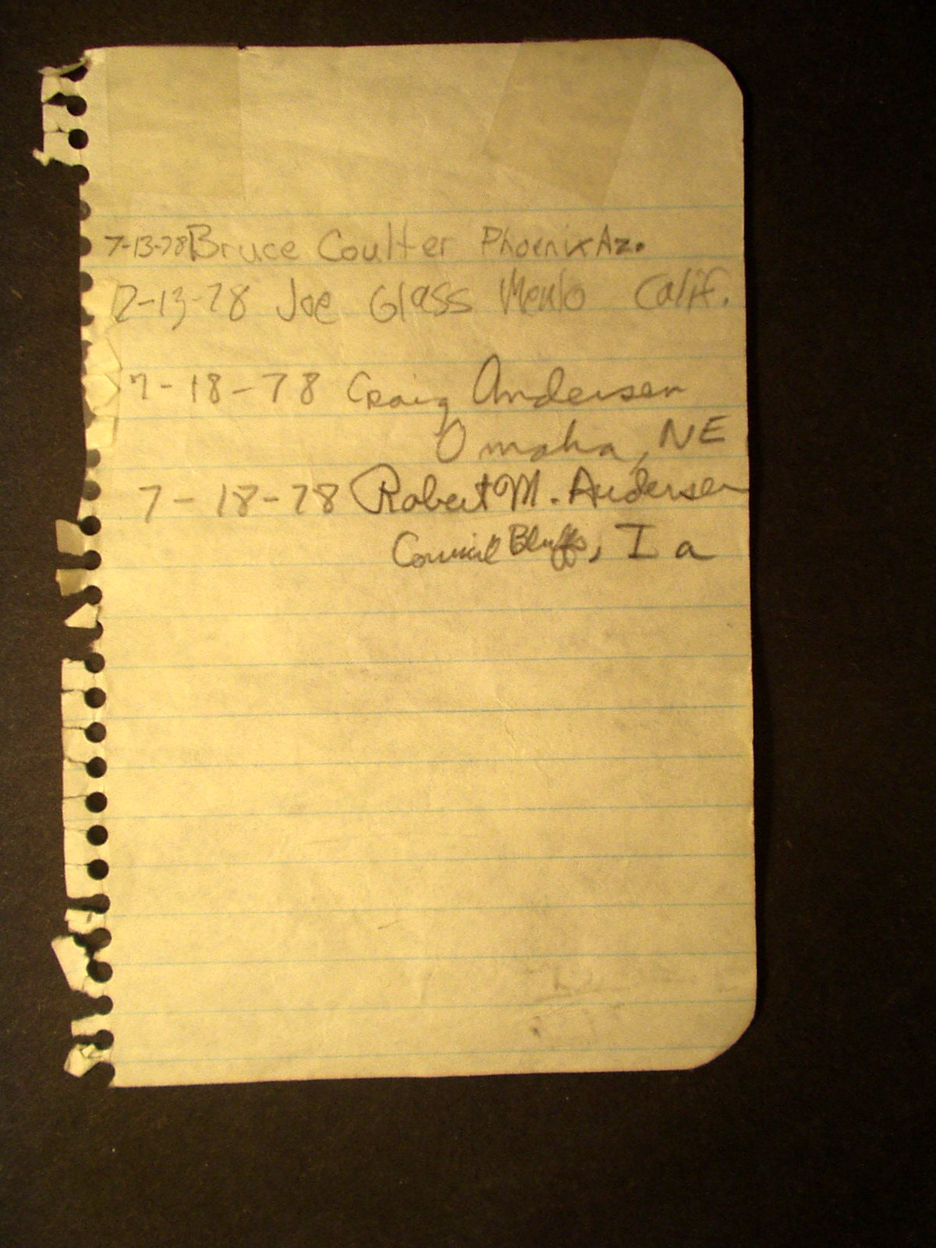 7-13-78 Bruce Coulter Phoenix Az.
7-13-78 Joe Glass Menlo Calif.
7-18-78 Craig Andersen
Omaha, NE
7-18-78 Robert M. Andersen
Council Bluffs, Ia